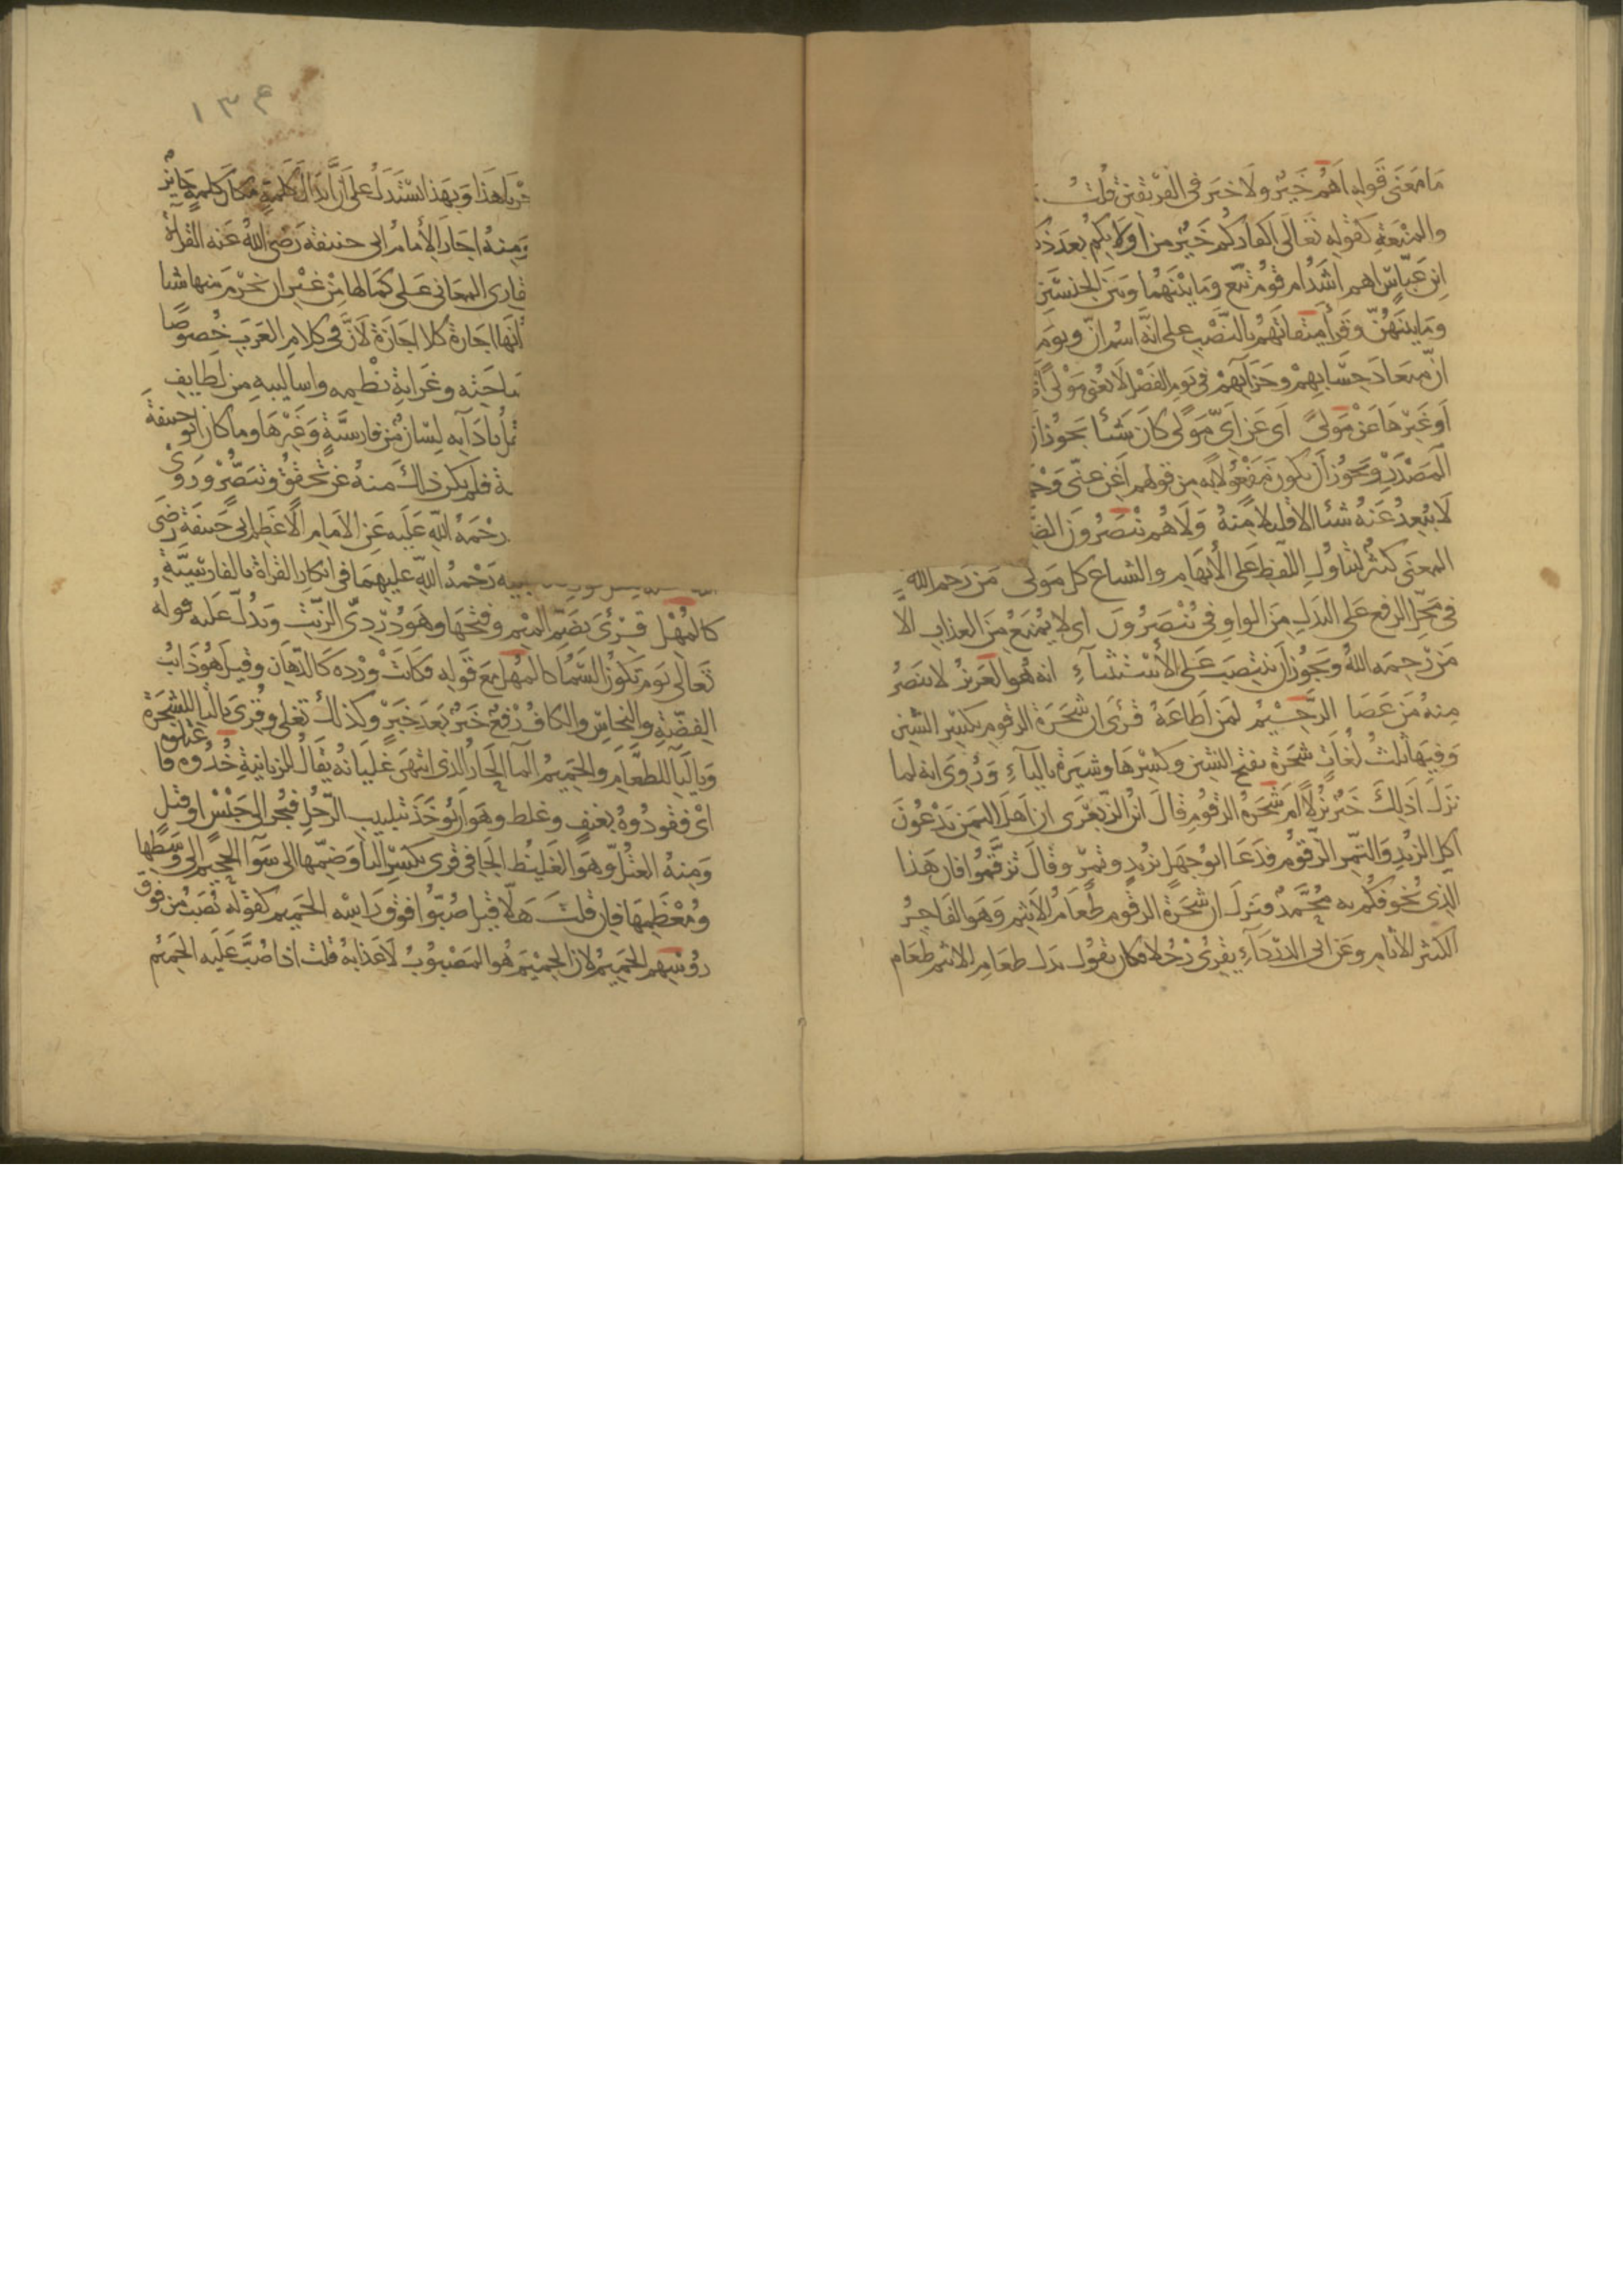 ما معنى قوله اهم خير ولا خير في الفريقين قلت
والمنعة كقوله تعالى اكفاركم خير من اولايكم بعد ذكر
ابن عباس اهم اشد ام قوم تبع وما بينهما وبين الجنسين
وما بينهن وقرا ميقاتهم بالنصب على انه اسم ان ويوم
ان ميعاد حسابهم وجزآيهم في يوم الفصل لا يغنى مولى
او غيرها عن مولى اى عن اى مولى كان شيا يجوز ان
المصدر ويجوز ان يكون مفعولا به من قولهم اغن عنى
لا يبعد عنه شيا الا قليلا منه ولا هم ينصرون
المعنى كثير لتناول اللفظ على الابهام والشياع كل مولى من رحم الله
في محل الرفع على البدل من الواو في ينصرون اى لا يمنع من العذاب الا
من رحمه الله ويجوز ان ينتصب على الاستثنآء انه هو العزيز لا ينصر
منه من عصا الرحيم لمن اطاعه قرى ان شجرة الزقوم بكسر الشين
وفيها ثلث لغات شجرة بفتح الشين وكسرها وشيرة باليآء وروى انه لما
نزل اذلك خير نزلا ام شجرة الزقوم قال ابن الزبعرى ان اهل اليمن يدعون
اكل الزبد والتمر الزقوم فدعا ابو جهل بزبد وتمر وقال تزقموا فان هذا
الذى يخوفكم به محمد فنزل ان شجرة الزقوم طعام الاثيم وهو الفاجر
الكثير الاثام وعن ابى الدردآء يقرئ رجلا فكان يقول بدل طعام الاثيم طعام
١٣٤
هذا وبهذا يستدل على ان ابدال كلمة مكان كلمة جايز
ومنه اجاز الامام ابى حنيفة رضى الله عنه القرآة
قارى المعانى على كمالها من غير ان يخرم منها شيا
انها اجازة كلا اجازة لان في كلام العرب خصوصا
وغرابة نظمه واساليبه من لطايف
بادآيه لسان من فارسية وغيرها وما كان ابو حنيفة
فلم يكن ذلك منه عن تحقق وتبصر وروى
رحمة الله عليه عن الامام الاعظم ابى حنيفة رضى
رحمة الله عليهما في انكار القراة بالفارسية
كالمهل قرئ بضم الميم وفتحها وهو دردى الزيت ويدل عليه قوله
تعالى يوم تكون السما كالمهل مع قوله فكانت وردة كالدهان وقيل هو ذايب
الفضة والنحاس والكاف رفع خبر بعد خبر وكذلك تغلى وقرى بالتا للشجرة
وباليآ للطعام والحميم المآ الحار الذى انتهى غليانه يقال للزبانية خذوه فاعتلوه
اى فقودوه بعنف وغلط وهو ان يوخذ بتلبيب الرجل فيجر الى حبس او قتل
ومنه العتل وهو الغليظ الجافي قرى بكسر التا وضمها الى سوآ الجحيم الى وسطها
ومعظمها فان قلت هلا قيل صبوا فوق راسه الحميم كقوله يصب من فوق
روسهم الحميم لان الحميم هو المصبوب لا عذابه قلت اذا صب عليه الحميم